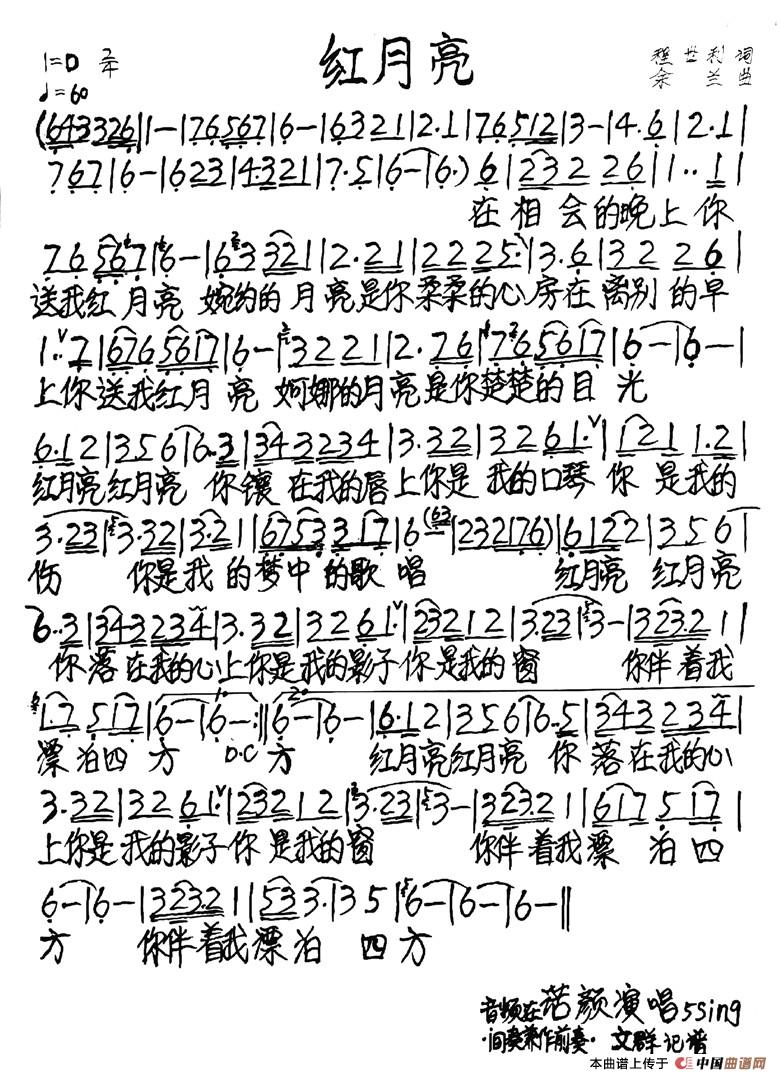 红月亮
1=D 2/4
♩=60
程世利 词
余兰 曲
(643326|1-|76567|6-|6321|2·1|76512|3-|4·6|2·1|
767|6-|623|4321|7·5|6-|6·) 6|232 26|1··1|
在相会的晚上你
76 567|6-|63 321|2·21|2225·|3·6|32 26|
送我红月亮 婉约的月亮是你柔柔的心房在离别的早
1··7|676 5617|6-|3221|2·76|76 5617|6-|6-|
上你送我红月亮 婀娜的月亮是你楚楚的目光
6·12|356|6··3|343234|3·32|3261·|121 1·2|
红月亮红月亮 你镶在我的唇上你是我的口琴你是我的
3·23|3·32|3·21|6753317|6(63|232176)|6122|356|
伤 你是我的梦中的歌唱 红月亮 红月亮
6··3|343234|3·32|3261·|23212|3·23|3-|323·21|
你落在我的心上你是我的影子你是我的窗 你伴着我
1·7 517|6-|6-:||6-|6-|6·12|356|6··5|343234|
漂泊四方 D.C 方 红月亮红月亮 你落在我的心
3·32|3261·|23212|3·23|3-|323·21|617 517|
上你是我的影子你是我的窗 你伴着我漂泊四
6-|6-|323·21|533·|35|6-|6-|6-||
方 你伴着我漂泊 四方
音频在诺颜演唱5Sing
·间奏兼作前奏· 文群记谱
本曲谱上传于 中国曲谱网